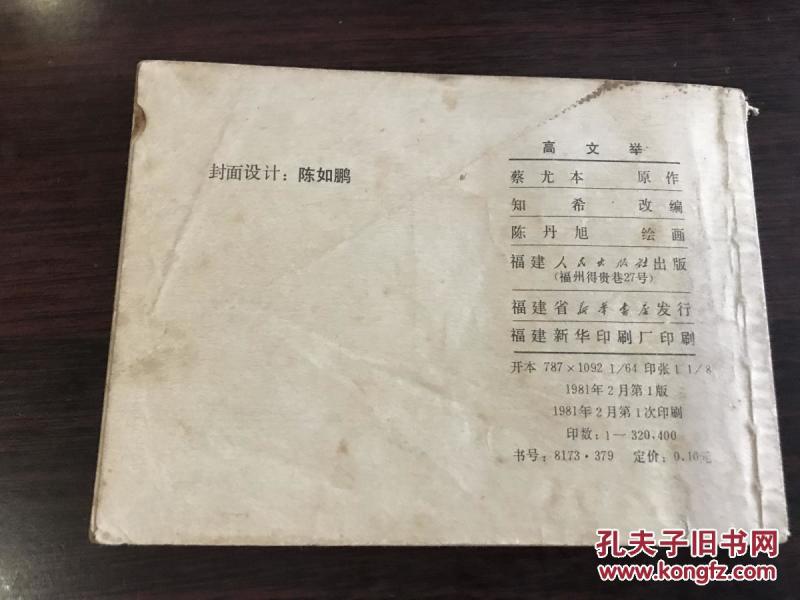 封面设计：陈如鹏
高文举
蔡尤本 原作
知希 改编
陈丹旭 绘画
福建人民出版社出版
（福州得贵巷27号）
福建省新华书店发行
福建新华印刷厂印刷
开本 787×1092 1/64 印张1 1/8
1981年2月第1版
1981年2月第1次印刷
印数：1—320,400
书号：8173·379 定价：0.10元
孔夫子旧书网
www.kongfz.com